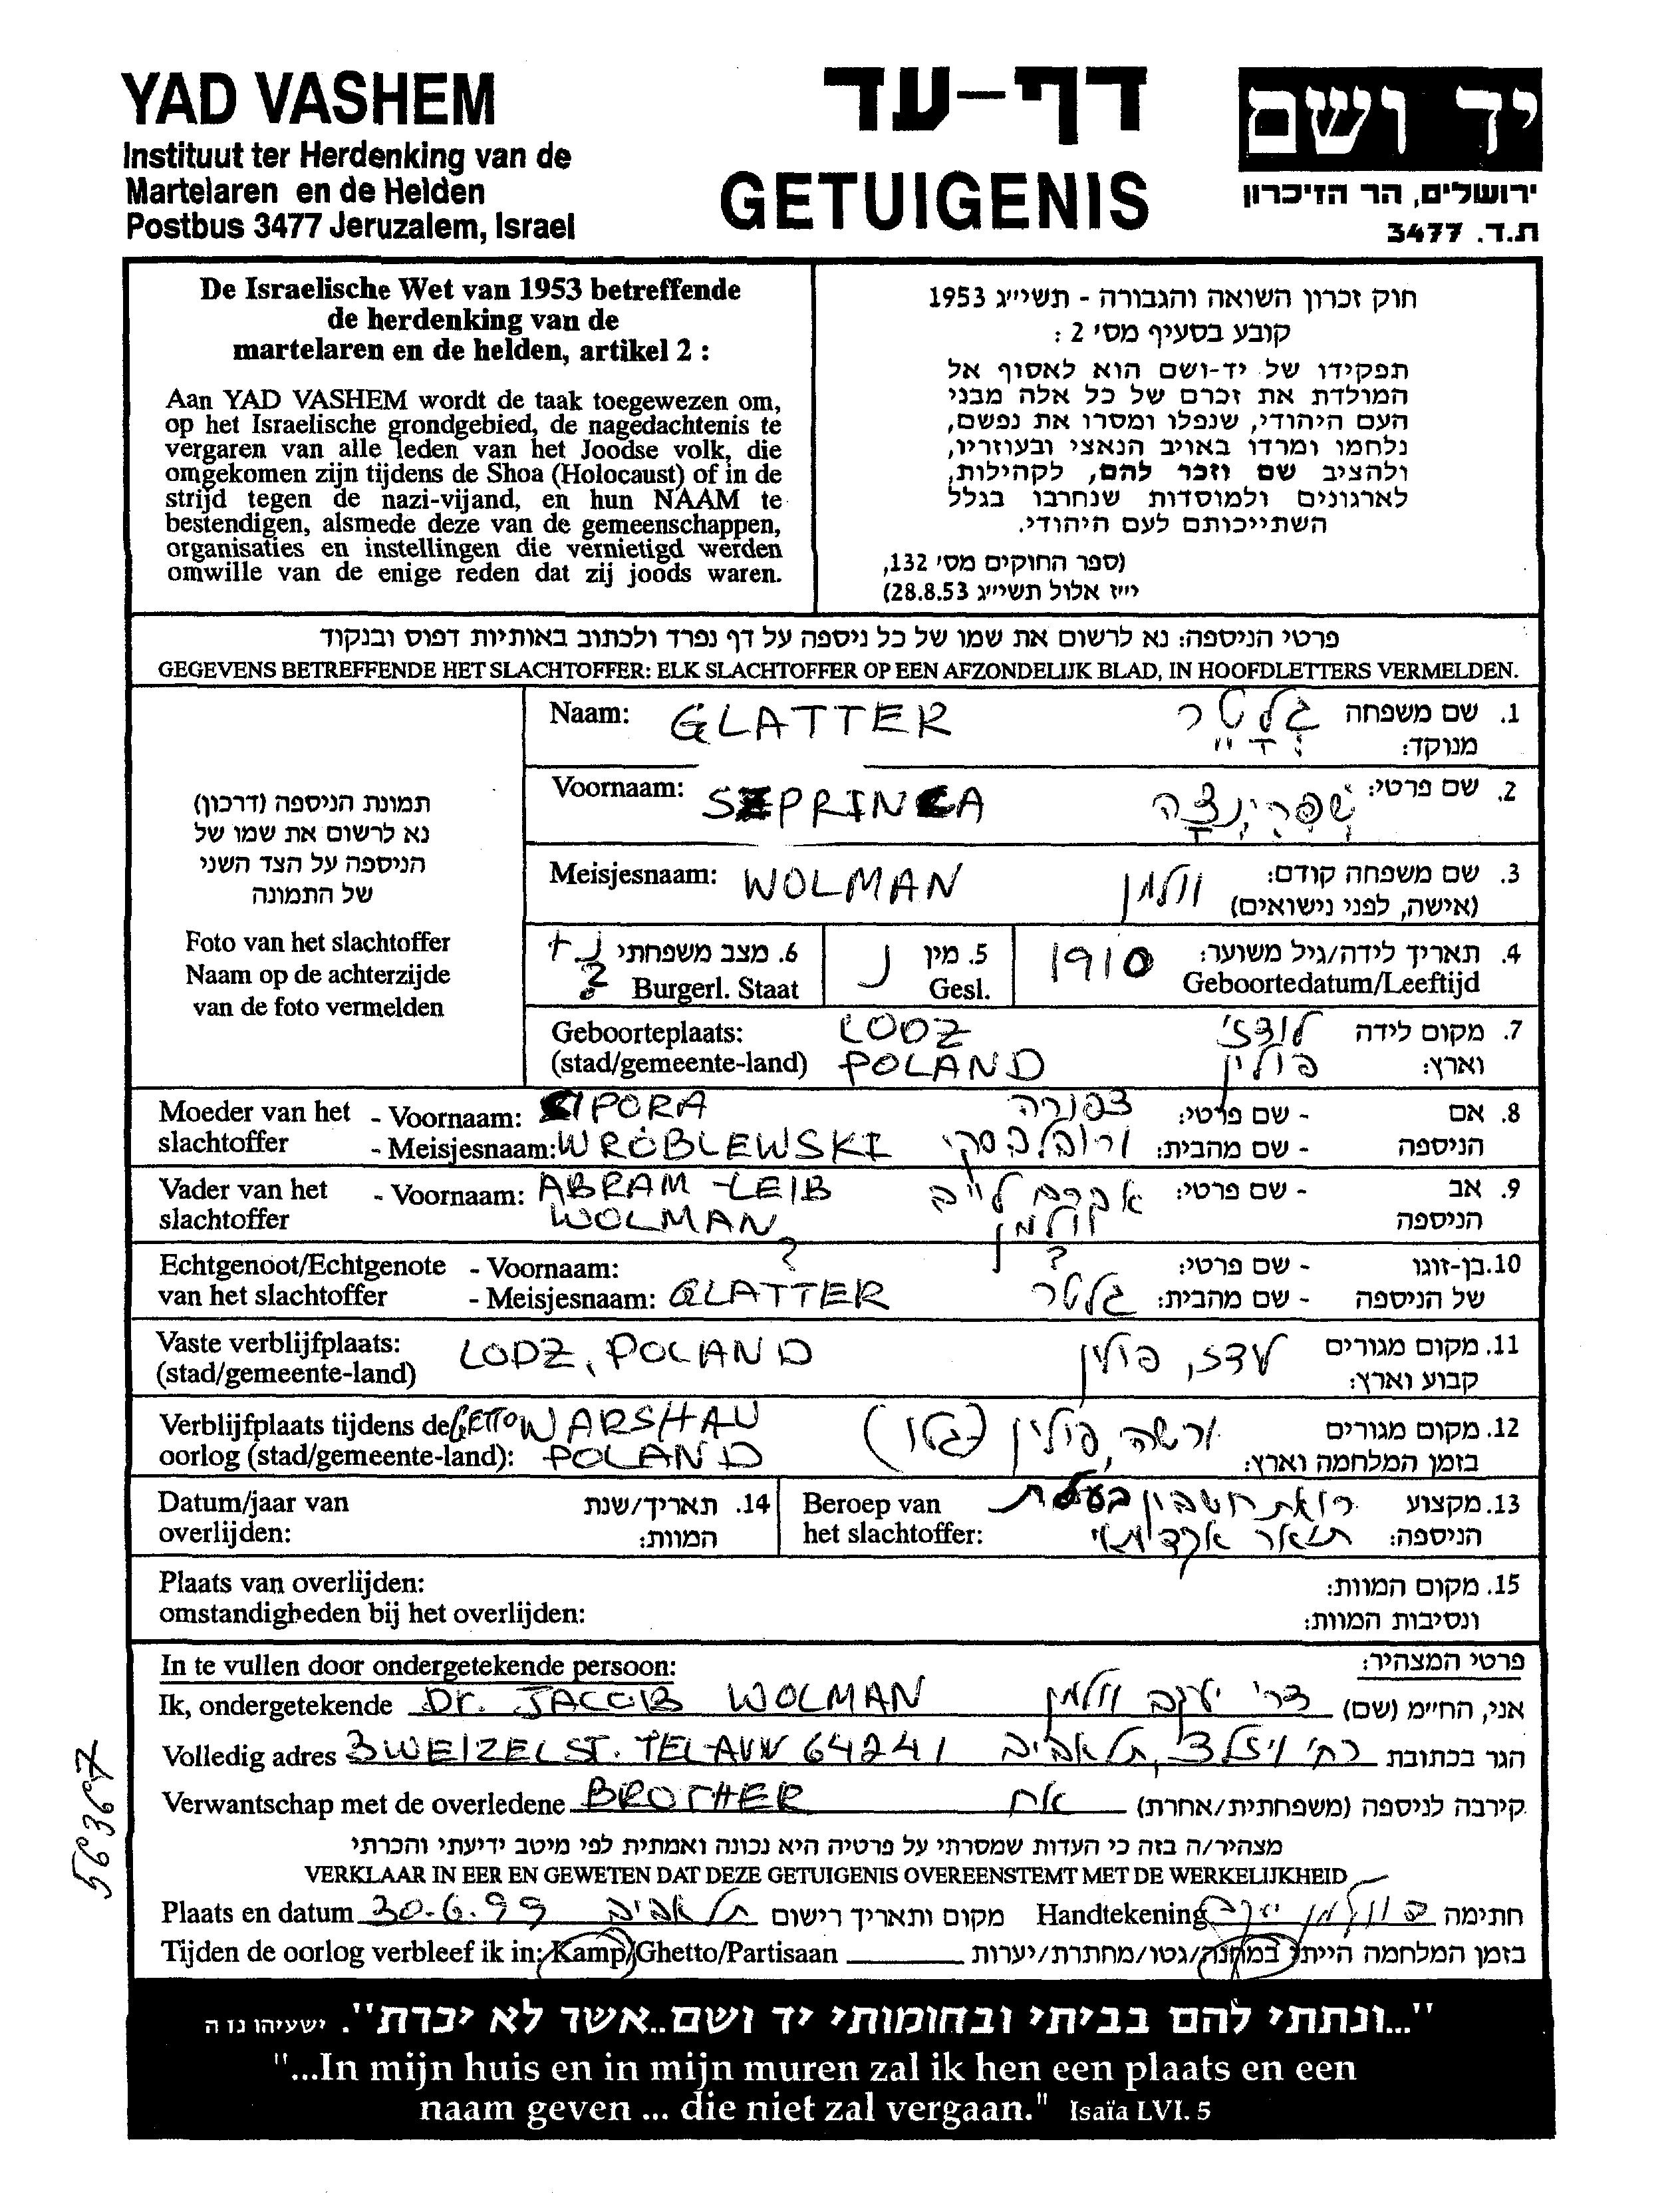 YAD VASHEM
Instituut ter Herdenking van de
Martelaren en de Helden
Postbus 3477 Jeruzalem, Israel
דף-עד
GETUIGENIS
יד ושם
ירושלים, הר הזיכרון
ת.ד. 3477
De Israelische Wet van 1953 betreffende
de herdenking van de
martelaren en de helden, artikel 2 :
Aan YAD VASHEM wordt de taak toegewezen om,
op het Israelische grondgebied, de nagedachtenis te
vergaren van alle leden van het Joodse volk, die
omgekomen zijn tijdens de Shoa (Holocaust) of in de
strijd tegen de nazi-vijand, en hun NAAM te
bestendigen, alsmede deze van de gemeenschappen,
organisaties en instellingen die vernietigd werden
omwille van de enige reden dat zij joods waren.
חוק זכרון השואה והגבורה - תשי״ג 1953
קובע בסעיף מס׳ 2 :
תפקידו של יד-ושם הוא לאסוף אל
המולדת את זכרם של כל אלה מבני
העם היהודי, שנפלו ומסרו את נפשם,
נלחמו ומרדו באויב הנאצי ובעוזריו,
ולהציב שם וזכר להם, לקהילות,
לארגונים ולמוסדות שנחרבו בגלל
השתייכותם לעם היהודי.
(ספר החוקים מס׳ 132,
י״ז אלול תשי״ג 28.8.53)
פרטי הניספה: נא לרשום את שמו של כל ניספה על דף נפרד ולכתוב באותיות דפוס ובנקוד
GEGEVENS BETREFFENDE HET SLACHTOFFER: ELK SLACHTOFFER OP EEN AFZONDELIJK BLAD, IN HOOFDLETTERS VERMELDEN.
תמונת הניספה (דרכון)
נא לרשום את שמו של
הניספה על הצד השני
של התמונה
Foto van het slachtoffer
Naam op de achterzijde
van de foto vermelden
Naam: GLATTER גלטר 1. שם משפחה
מנוקד:
Voornaam: שפרינצה 2. שם פרטי:
Meisjesnaam: WOLMAN וולמן 3. שם משפחה קודם:
(אישה, לפני נישואים)
6. מצב משפחתי נ + ?
Burgerl. Staat
5. מין נ
Gesl.
1910 4. תאריך לידה/גיל משוער:
Geboortedatum/Leeftijd
Geboorteplaats: LODZ לודז׳ 7. מקום לידה
(stad/gemeente-land) POLAND פולין וארץ:
Moeder van het - Voornaam: CIPORA צפורה - שם פרטי: 8. אם
slachtoffer - Meisjesnaam: WROBLEWSKI ורובלבסקי - שם מהבית: הניספה
Vader van het - Voornaam: ABRAM-LEIB אברם לייב - שם פרטי: 9. אב
slachtoffer WOLMAN וולמן הניספה
Echtgenoot/Echtgenote - Voornaam: ? ? - שם פרטי: 10. בן-זוגו
van het slachtoffer - Meisjesnaam: GLATTER גלטר - שם מהבית: של הניספה
Vaste verblijfplaats: LODZ, POLAND לודז, פולין 11. מקום מגורים
(stad/gemeente-land) קבוע וארץ:
Verblijfplaats tijdens de GETTO WARSHAU ורשה, פולין (גטו) 12. מקום מגורים
oorlog (stad/gemeente-land): POLAND בזמן המלחמה וארץ:
Datum/jaar van 14. תאריך/שנת
overlijden: המוות:
Beroep van רואת חשבון בעלת 13. מקצוע
het slachtoffer: תואר אקדמאי הניספה:
Plaats van overlijden: 15. מקום המוות:
omstandigheden bij het overlijden: ונסיבות המוות:
In te vullen door ondergetekende persoon: פרטי המצהיר:
Ik, ondergetekende Dr. JACOB WOLMAN דר׳ יעקב וולמן אני, החי״מ (שם)
Volledig adres 3 WEIZEL ST. TEL-AVIV 64241 רח׳ וייזל 3, תל אביב הגר בכתובת
Verwantschap met de overledene BROTHER אח קירבה לניספה (משפחתית/אחרת)
מצהיר/ה בזה כי העדות שמסרתי על פרטיה היא נכונה ואמתית לפי מיטב ידיעתי והכרתי
VERKLAAR IN EER EN GEWETEN DAT DEZE GETUIGENIS OVEREENSTEMT MET DE WERKELIJKHEID
Plaats en datum 30-6-99 תל אביב מקום ותאריך רישום Handtekening וולמן יעקב חתימה
Tijden de oorlog verbleef ik in: Kamp/Ghetto/Partisaan בזמן המלחמה הייתי במחנה/גטו/מחתרת/יערות
56367
"...ונתתי להם בביתי ובחומותי יד ושם..אשר לא יכרת". ישעיהו נו ה
"...In mijn huis en in mijn muren zal ik hen een plaats en een
naam geven ... die niet zal vergaan." Isaïa LVI. 5